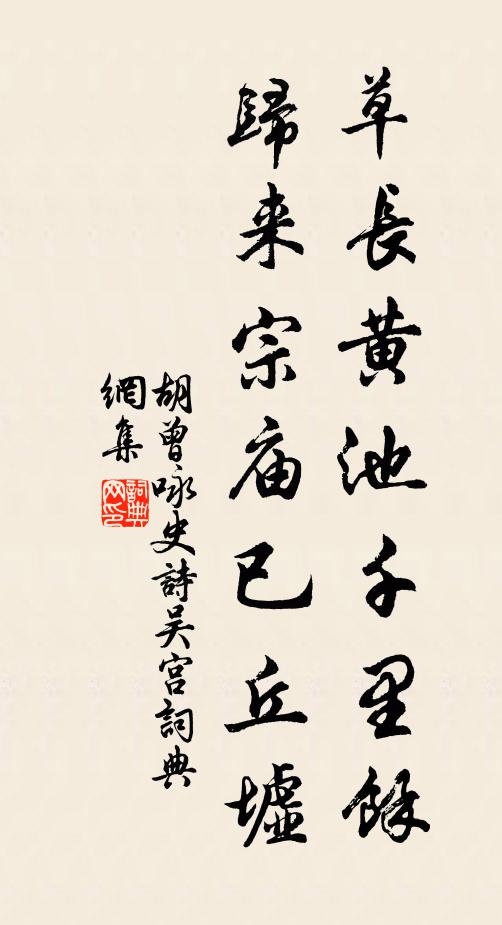 草長黄池千里餘
歸来宗庙已丘墟
胡曾咏史詩吴宫詞典
網集
詞典網印